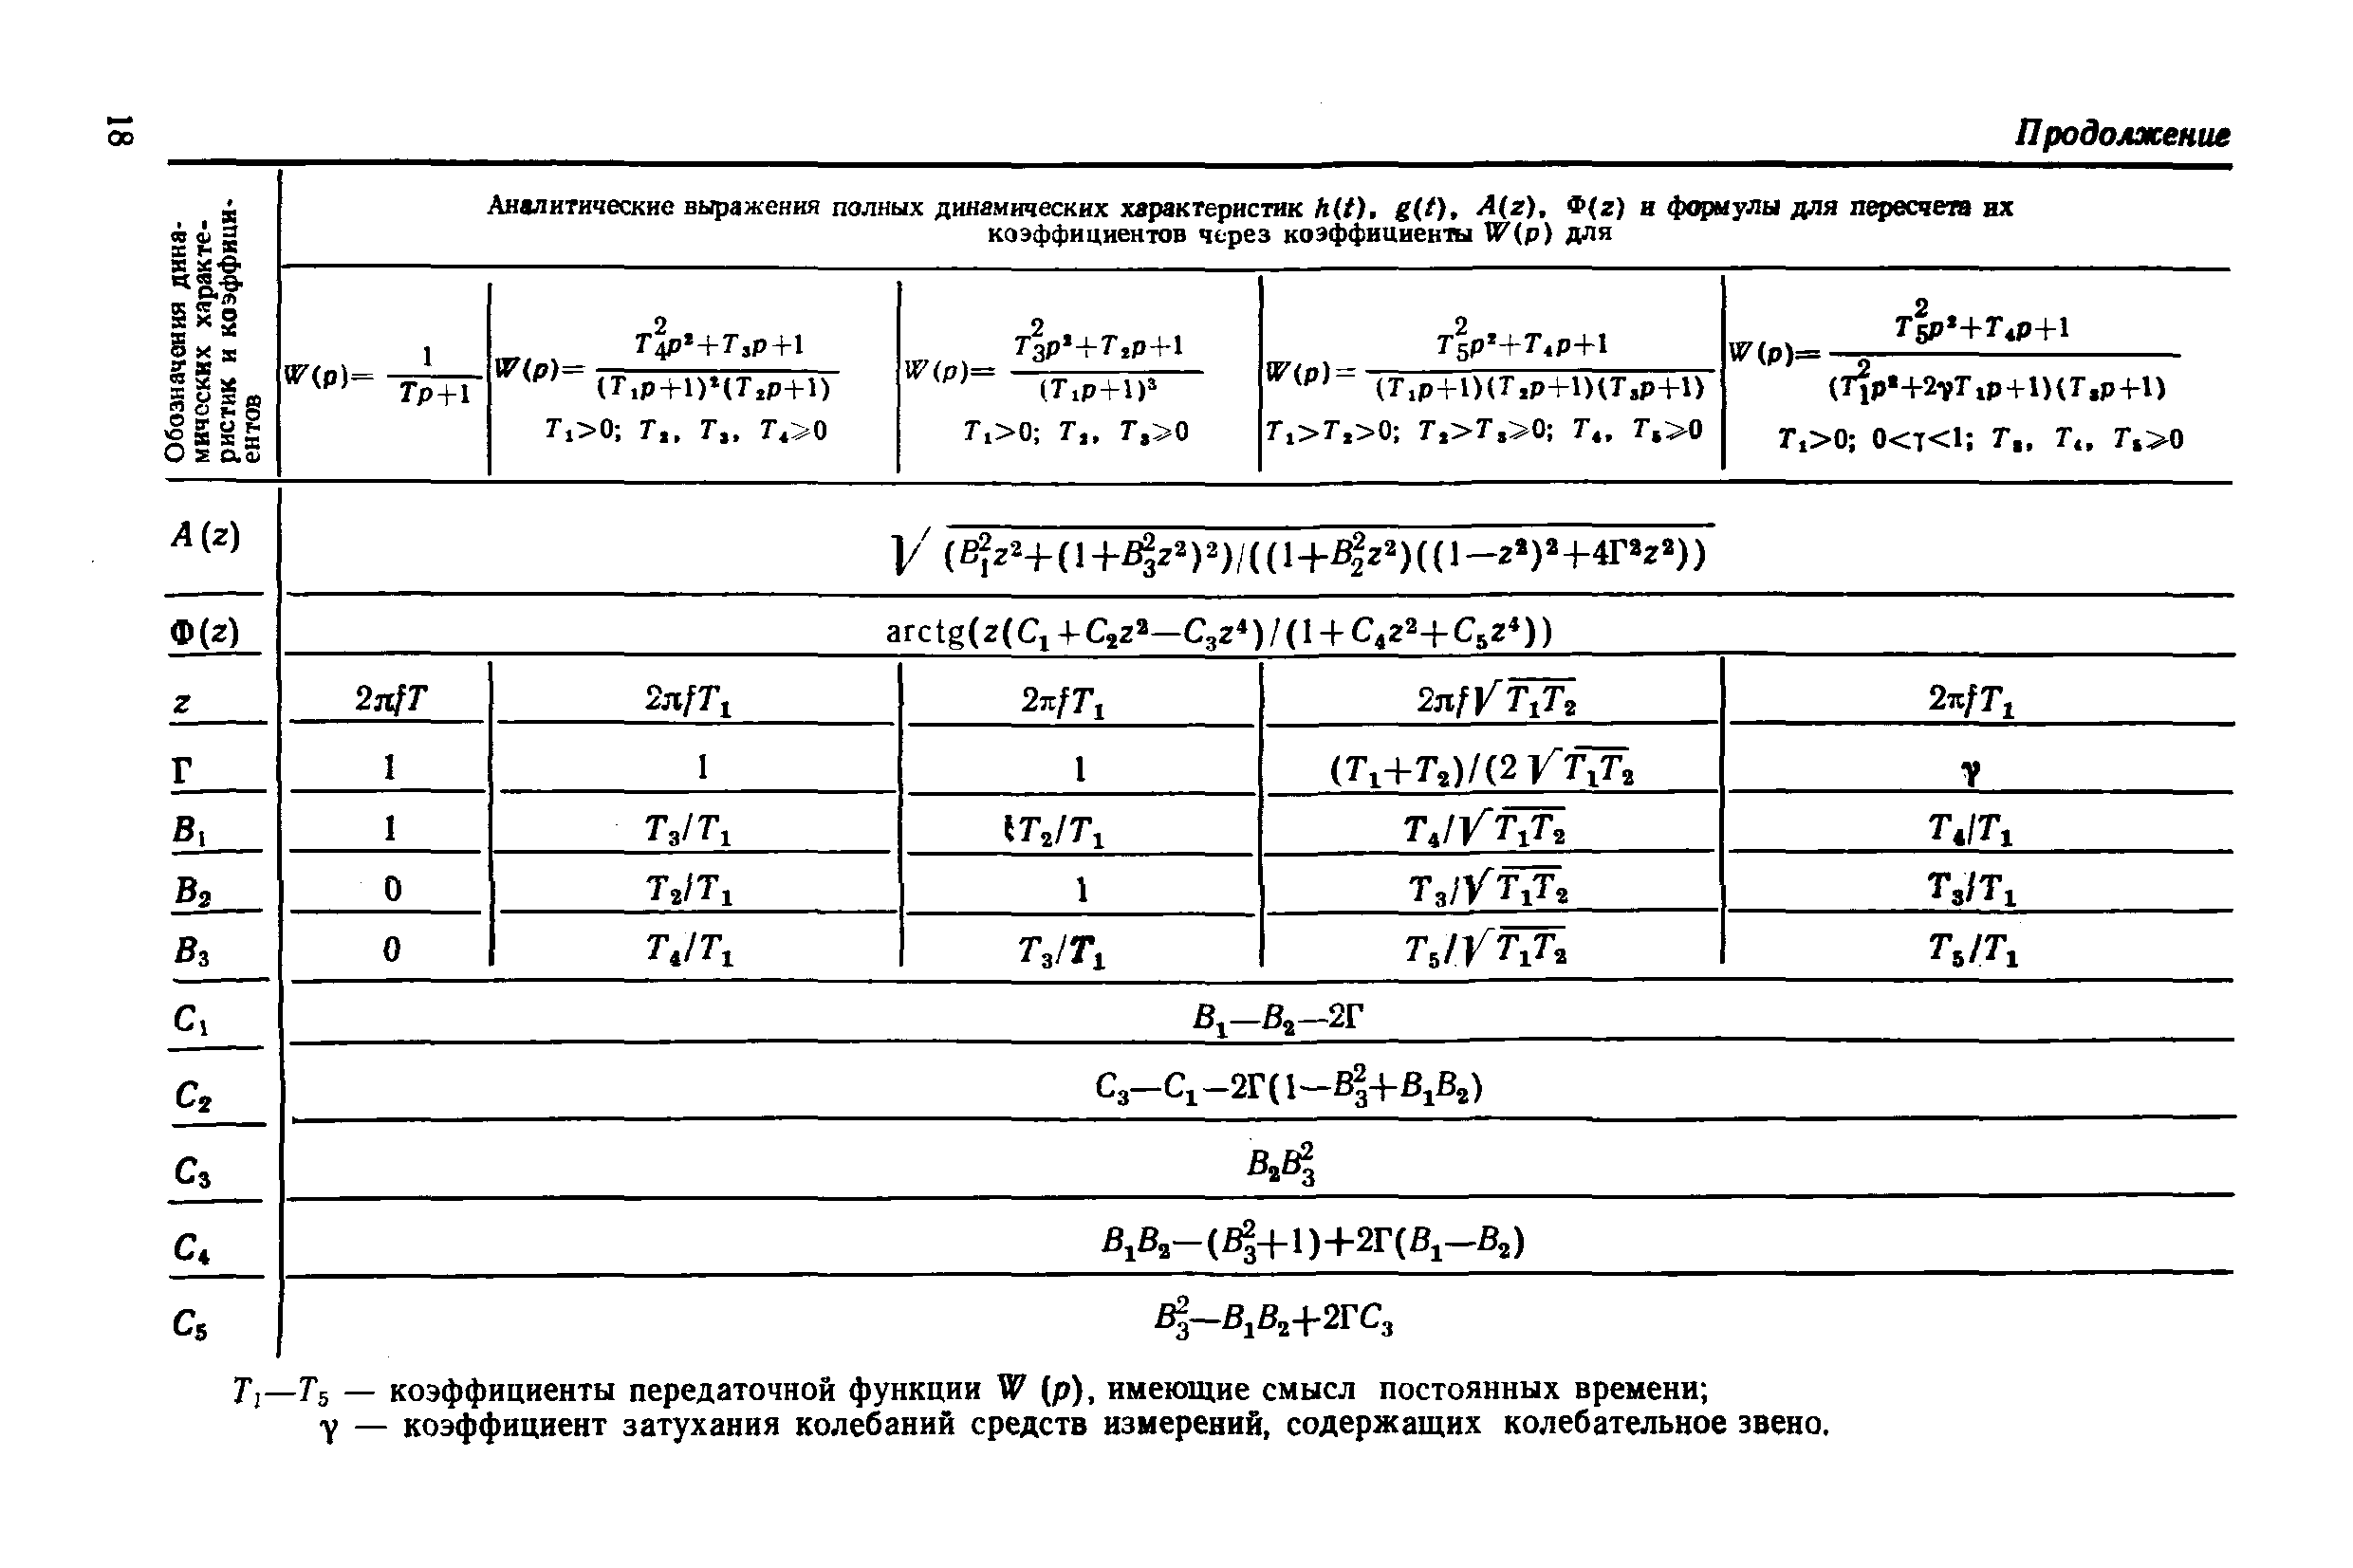 18
Продолжение
Обозначения дина-
мических характе-
ристик и коэффици-
ентов
Аналитические выражения полных динамических характеристик h(t), g(t), A(z), Ф(z) и формулы для пересчета их
коэффициентов через коэффициенты W(p) для
W(p)= 1/(Tp+1)
W(p)= (T₄²p²+T₃p+1)/((T₁p+1)²(T₂p+1))
T₁>0; T₂, T₃, T₄⩾0
W(p)= (T₃²p²+T₂p+1)/(T₁p+1)³
T₁>0; T₂, T₃⩾0
W(p)= (T₅²p²+T₄p+1)/((T₁p+1)(T₂p+1)(T₃p+1))
T₁>T₂>0; T₂>T₃⩾0; T₄, T₅⩾0
W(p)= (T₅²p²+T₄p+1)/((T₁²p²+2γT₁p+1)(T₃p+1))
T₁>0; 0<γ<1; T₃, T₄, T₅⩾0
A(z) √(B₁²z²+(1+B₃²z²)²)/((1+B₂²z²)((1—z²)²+4Г²z²))
Ф(z) arctg(z(C₁+C₂z²—C₃z⁴)/(1+C₄z²+C₅z⁴))
z 2πfT 2πfT₁ 2πfT₁ 2πf√T₁T₂ 2πfT₁
Г 1 1 1 (T₁+T₂)/(2√T₁T₂ γ
B₁ 1 T₃/T₁ T₂/T₁ T₄/√T₁T₂ T₄/T₁
B₂ 0 T₂/T₁ 1 T₃/√T₁T₂ T₃/T₁
B₃ 0 T₄/T₁ T₃/T₁ T₅/√T₁T₂ T₅/T₁
C₁ B₁—B₂—2Г
C₂ C₃—C₁—2Г(1—B₃²+B₁B₂)
C₃ B₂B₃²
C₄ B₁B₂—(B₃²+1)+2Г(B₁—B₂)
C₅ B₃²—B₁B₂+2ГC₃
T₁—T₅ — коэффициенты передаточной функции W (p), имеющие смысл постоянных времени;
γ — коэффициент затухания колебаний средств измерений, содержащих колебательное звено.